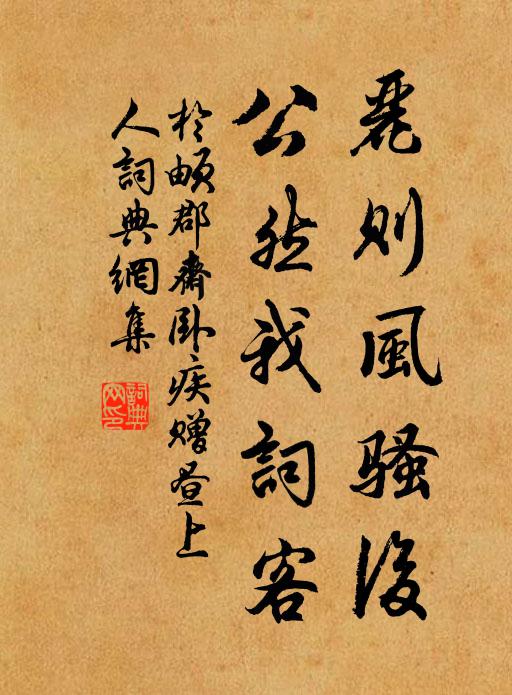 麗則風騷後
公然我詞客
於頔郡齋卧疾贈晝上
人詞典網集
詞典
网印